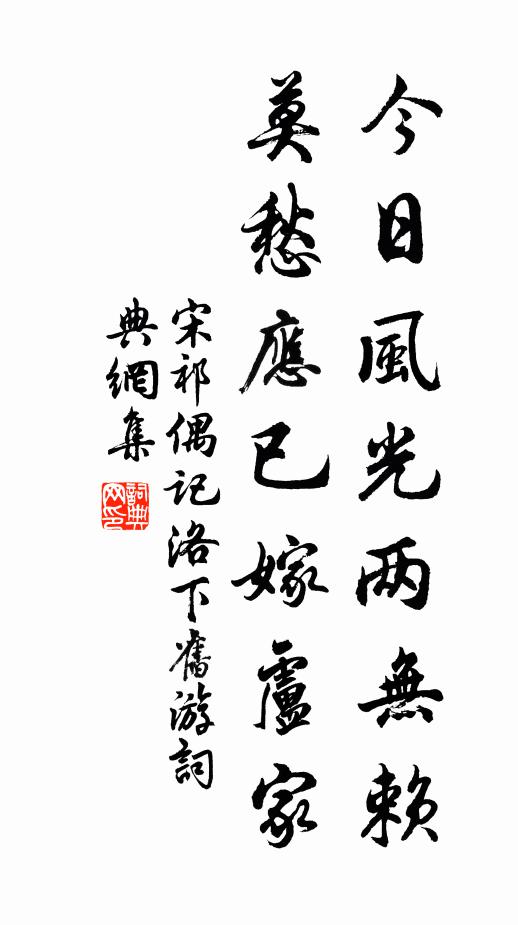 今日風光两無賴
莫愁應已嫁盧家
宋祁偶记洛下舊游詞
典網集
詞典网印